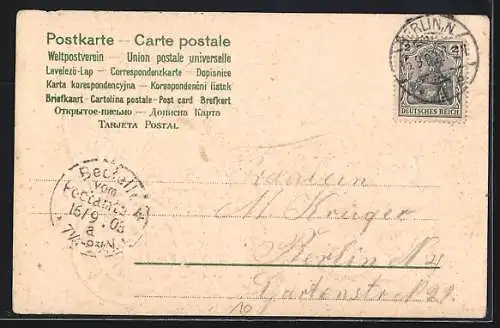 Postkarte — Carte postale
Weltpostverein — Union postale universelle
Levelező-Lap — Correspondenzkarte — Dopisnice
Karta korespondencyjna — Korespondenční lístek
Briefkaart - Cartolina postale - Post card - Brefkort
Открытое-письмо — Дописна Карта
TARJETA POSTAL
BERLIN.N.
DEUTSCHES REICH
Fräulein
M. Krüger
Berlin N 4
Gartenstr. N 29.
Bestellt
vom
Postamte 4
15/9.03